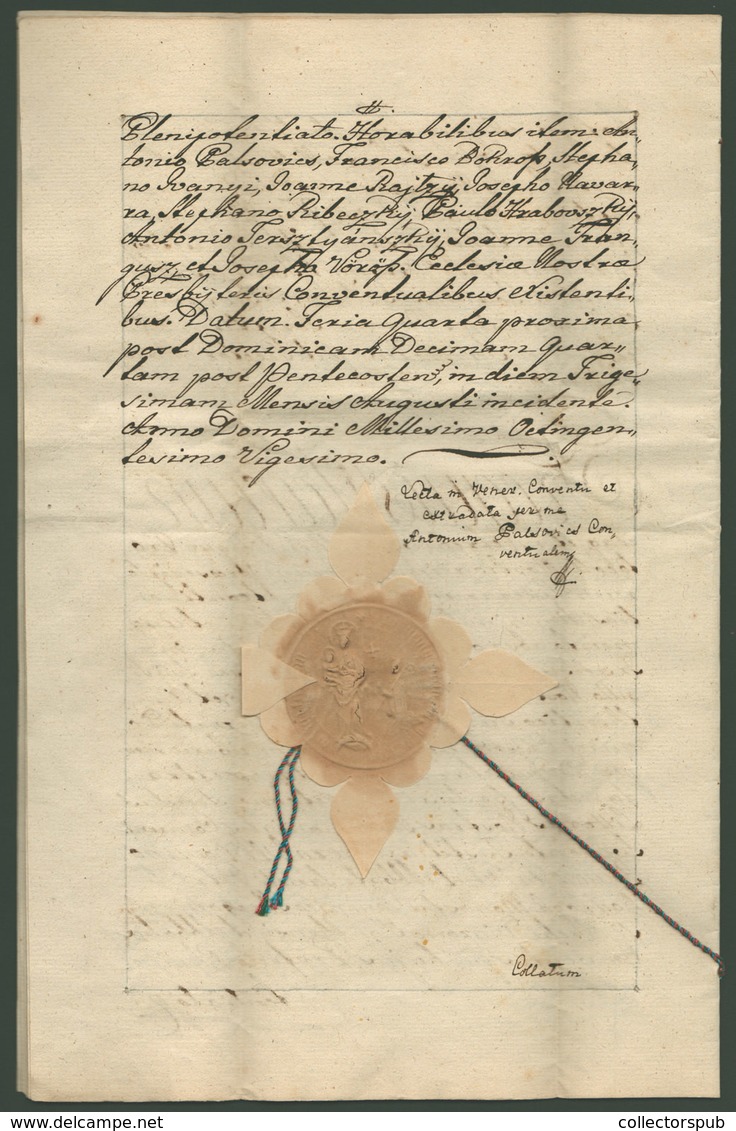 Plenipotentiato. Honorabilibus item: An„
tonio Palsovics, Francisco Bokross, Stepha„
no Ivanyi, Joanne Rajtzij, Josepho Navar„
ra, Stephano Ribeczkÿ, Paulo Hrabovszkÿ,
Antonio Tersztyánszkÿ, Joanne Tran„
gusz, et Josepho Vörös. Ecclesiæ Nostræ
Presbÿteris Conventualibus existenti„
bus. Datum. Feria Quarta proxima
post Dominicam Decimam Quar„
tam post Pentecosten, in diem Trige„
simam Mensis Augusti incidente.
Anno Domini Millesimo Octingen„
tesimo Vigesimo.
Lecta in Vener. Conventu et
extradata per me
Antonium Palsovics Con„
ventualem
Collatum
collectorspub